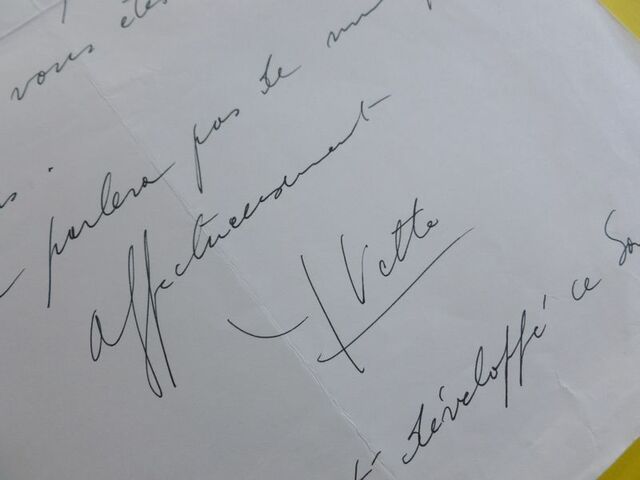 vous êtes
parlera pas de
affectueusement
Yvette
développé ce